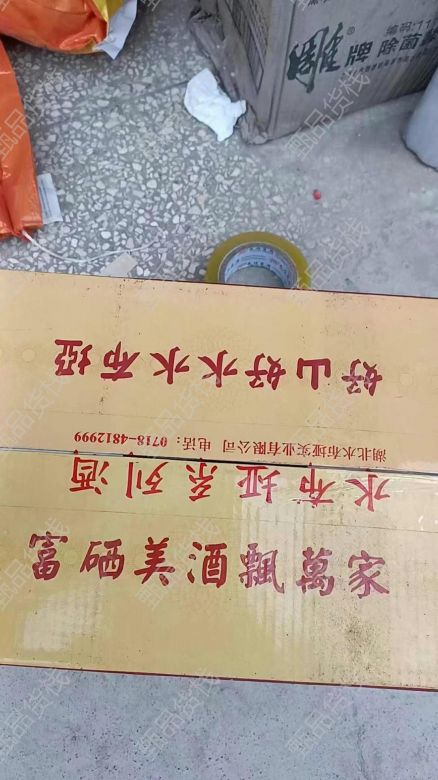 雕®牌 除菌
编码:11
好山好水水布垭
湖北水布垭实业有限公司 电话：0718-4812999
水布垭系列酒
富硒美酒飄萬家
甄品货栈